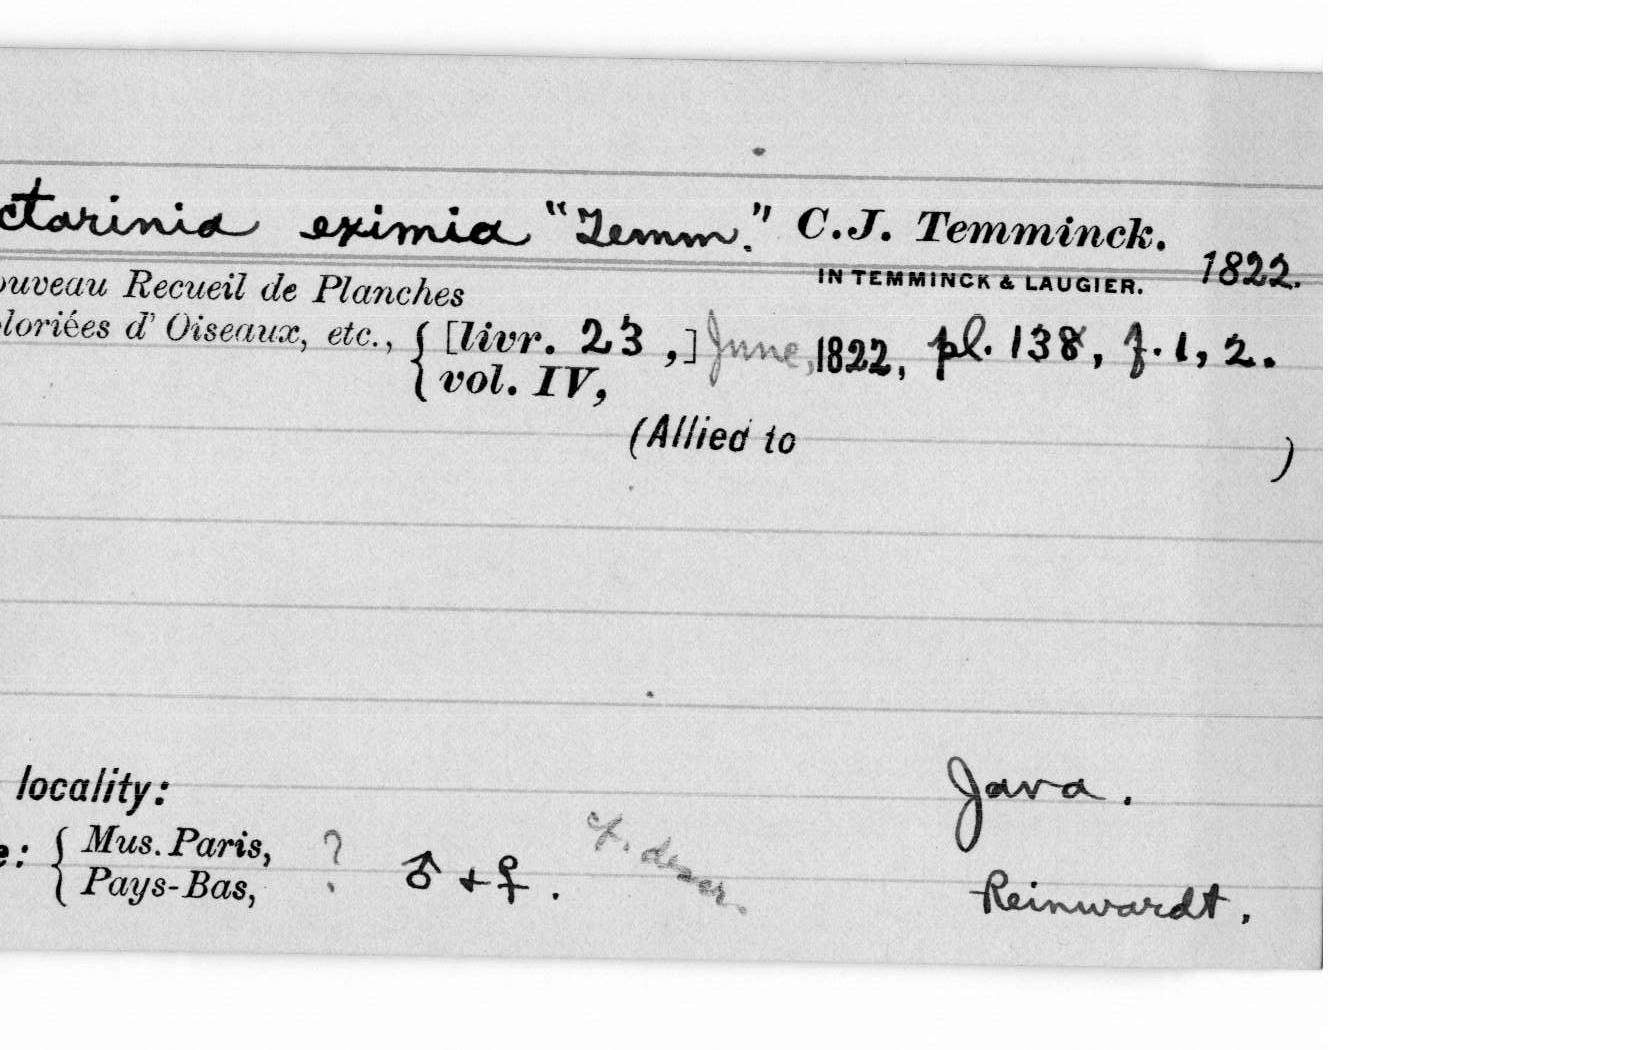 ctarinia eximia "Temm." C.J. Temminck.
IN TEMMINCK & LAUGIER. 1822.
ouveau Recueil de Planches
loriées d' Oiseaux, etc., { [livr. 23 ,] June, 1822, pl. 138, f. 1, 2.
vol. IV,
(Allied to )
locality: Java.
e: { Mus. Paris, ? ♂ + ♀. cf. descr.
Pays-Bas, Reinwardt.